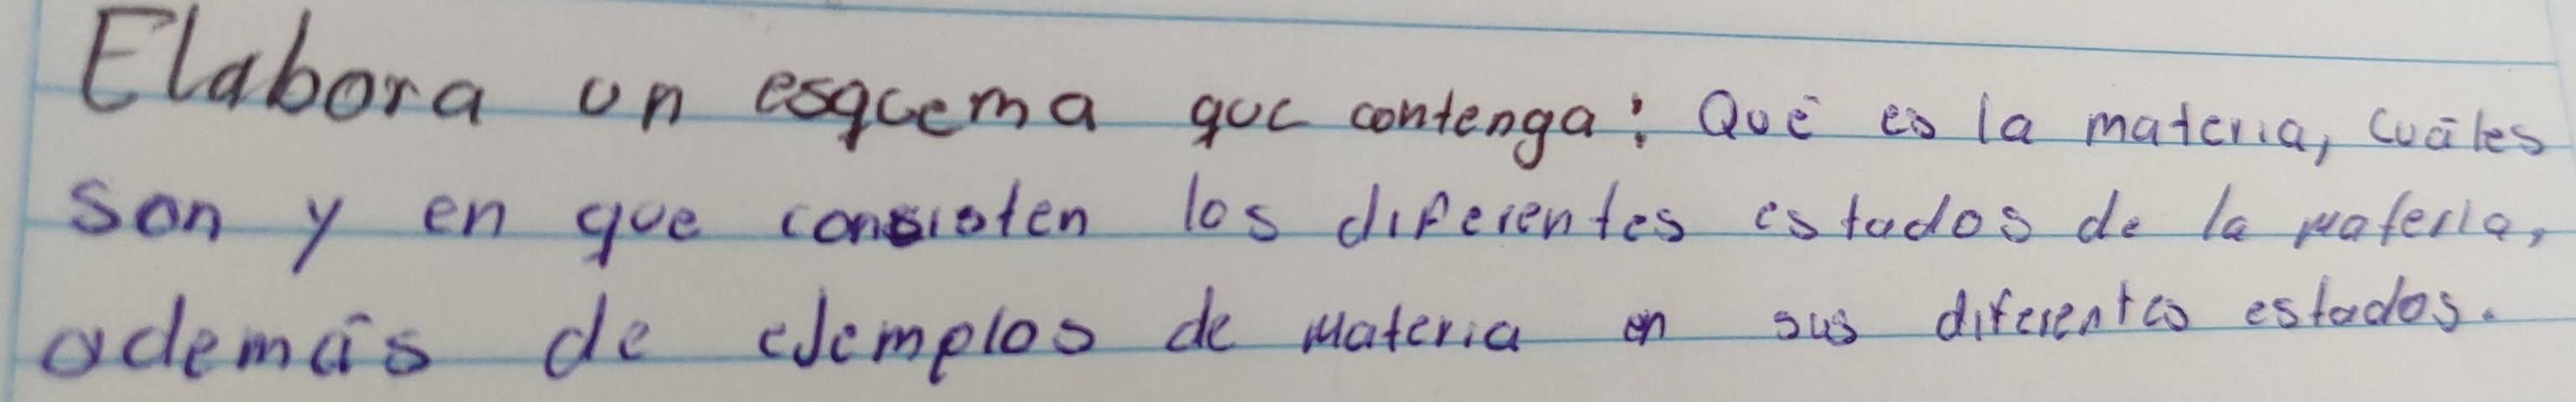 Elabora un esquema que contenga: Qué es la materia, cuáles
son y en que consisten los diferentes estados de la materia,
además de ejemplos de materia en sus diferentes estados.